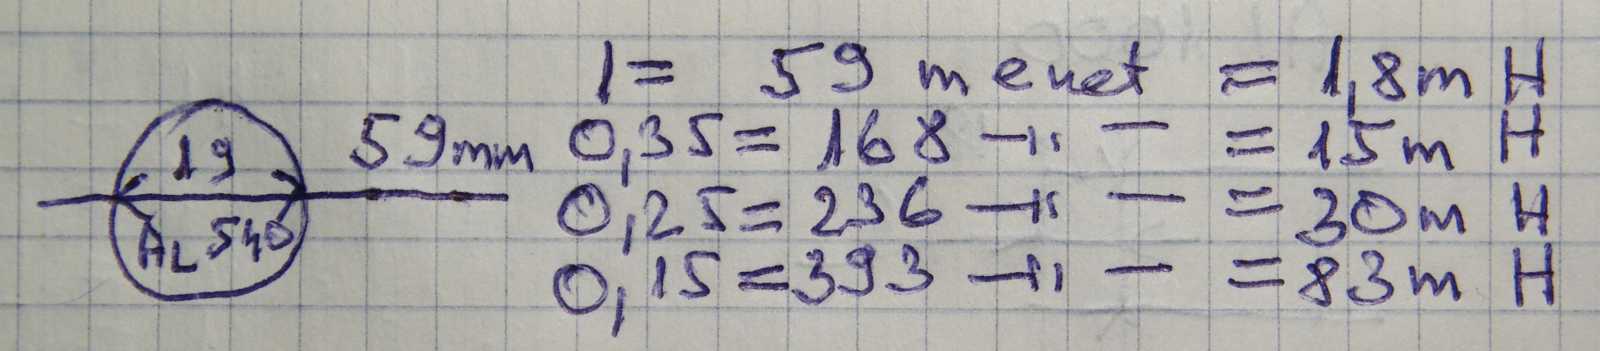 1= 59 menet = 1,8m H
19 59mm 0,35= 168 -||- = 15m H
AL 540 0,25= 236 -||- = 30m H
0,15=393 -||- = 83m H